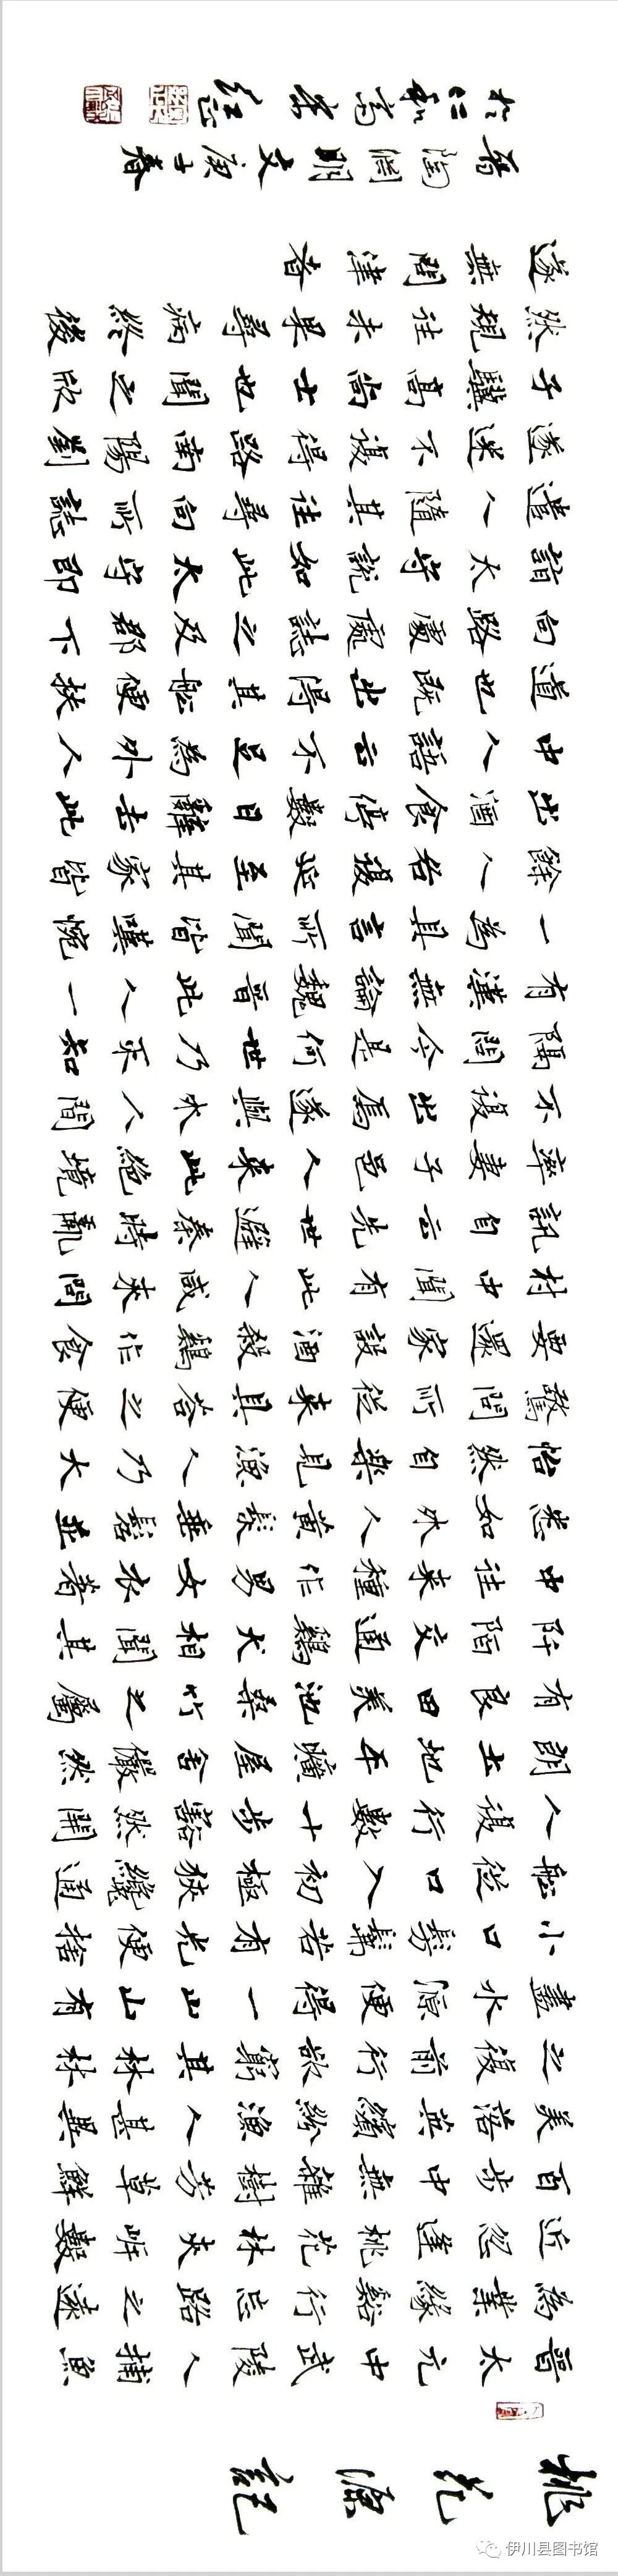 桃花源記
晉太元中武陵人捕魚
為業緣谿行忘路之遠
近忽逢桃花林夾岸數
百步中無雜樹芳草鮮
美落英繽紛漁人甚異
之復前行欲窮其林林
盡水源便得一山山有
小口髣髴若有光便捨
船從口入初極狹纔通
人復行數十步豁然開
朗土地平曠屋舍儼然
有良田美池桑竹之屬
阡陌交通鷄犬相聞其
中往來種作男女衣著
悉如外人黃髮垂髫並
怡然自樂見漁人乃大
驚問所從來具答之便
要還家設酒殺鷄作食
村中聞有此人咸來問
訊自云先世避秦時亂
率妻子邑人來此絕境
不復出焉遂與外人間
隔問今是何世乃不知
有漢無論魏晉此人一
一為具言所聞皆嘆惋
餘人各復延至其家皆
出酒食停數日辭去此
中人語云不足為外人
道也既出得其船便扶
向路處處誌之及郡下
詣太守說如此太守即
遣人隨其往尋向所誌
遂迷不復得路南陽劉
子驥高尚士也聞之欣
然規往未果尋病終後
遂無問津者
晉陶淵明文庚子春
於仁和
伊川县图书馆